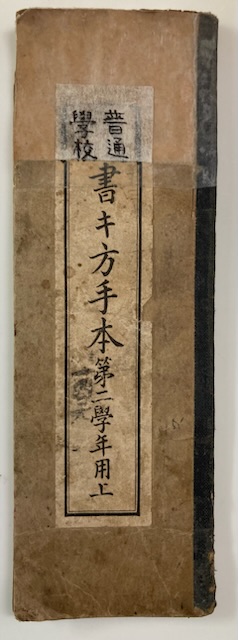 普通
學校
書キ方手本第二學年用上